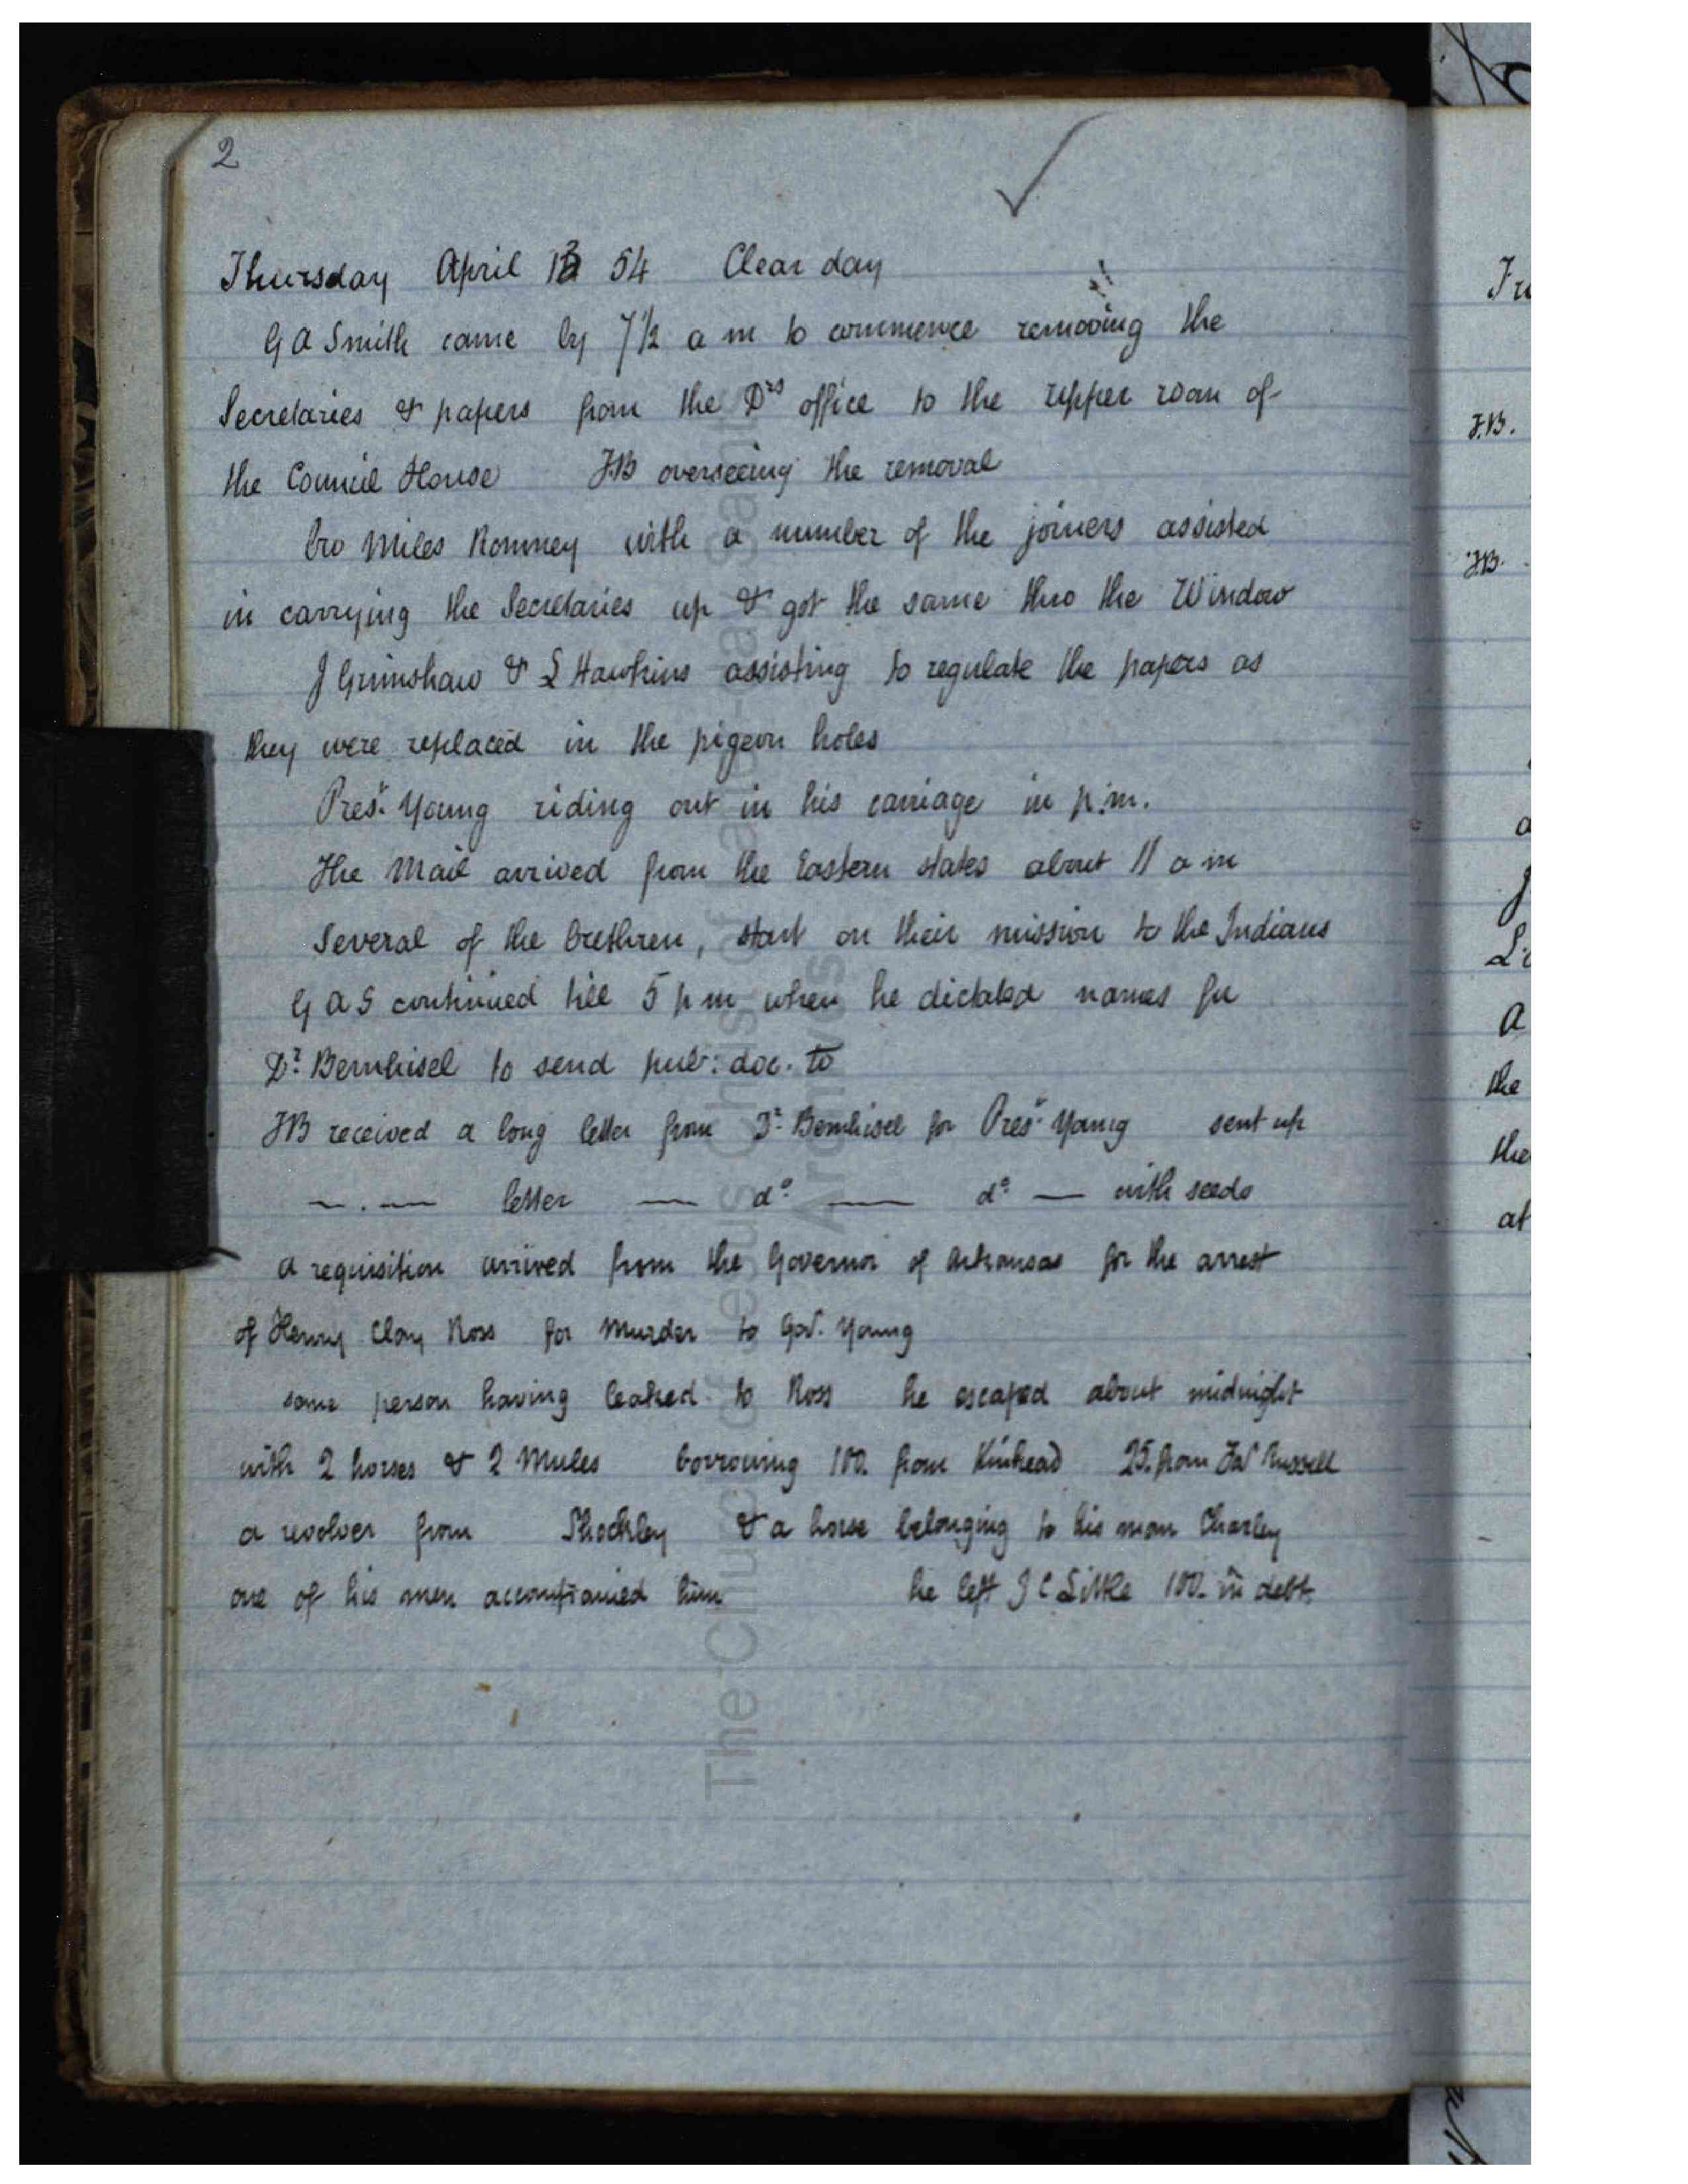 2
Thursday April 13 54 Clear day
G A Smith came by 7½ a m to commence removing the
Secretaries & papers from the Drs office to the upper room of
the Council House JB overseeing the removal
bro Miles Romney with a number of the joiners assisted
in carrying the Secretaries up & got the same thro the Window
J Grimshaw & L Hawkins assisting to regulate the papers as
they were replaced in the pigeon holes
Prest. Young riding out in his carriage in p.m.
The Mail arrived from the Eastern states about 11 a m
Several of the brethren, start on their mission to the Indians
G A S continued till 5 p m when he dictated names for
Dr. Bernhisel to send pub: doc. to
JB received a long letter from Dr. Bernhisel for Prest. Young sent up
— . — letter — do. — do. — with seeds
a requisition arrived from the Governor of Arkansas for the arrest
of Henry Clay Ross for Murder to Gov. Young
some person having leaked to Ross he escaped about midnight
with 2 horses & 2 Mules borrowing 100. from Kinkead 25. from Russell
a revolver from Shockley & a horse belonging to his man Charley
one of his men accompanied him he left J C Little 100. in debt
The Church of Jesus Christ of Latter-day Saints
Archives
J.B.
J.B.
a
A
the
the
at